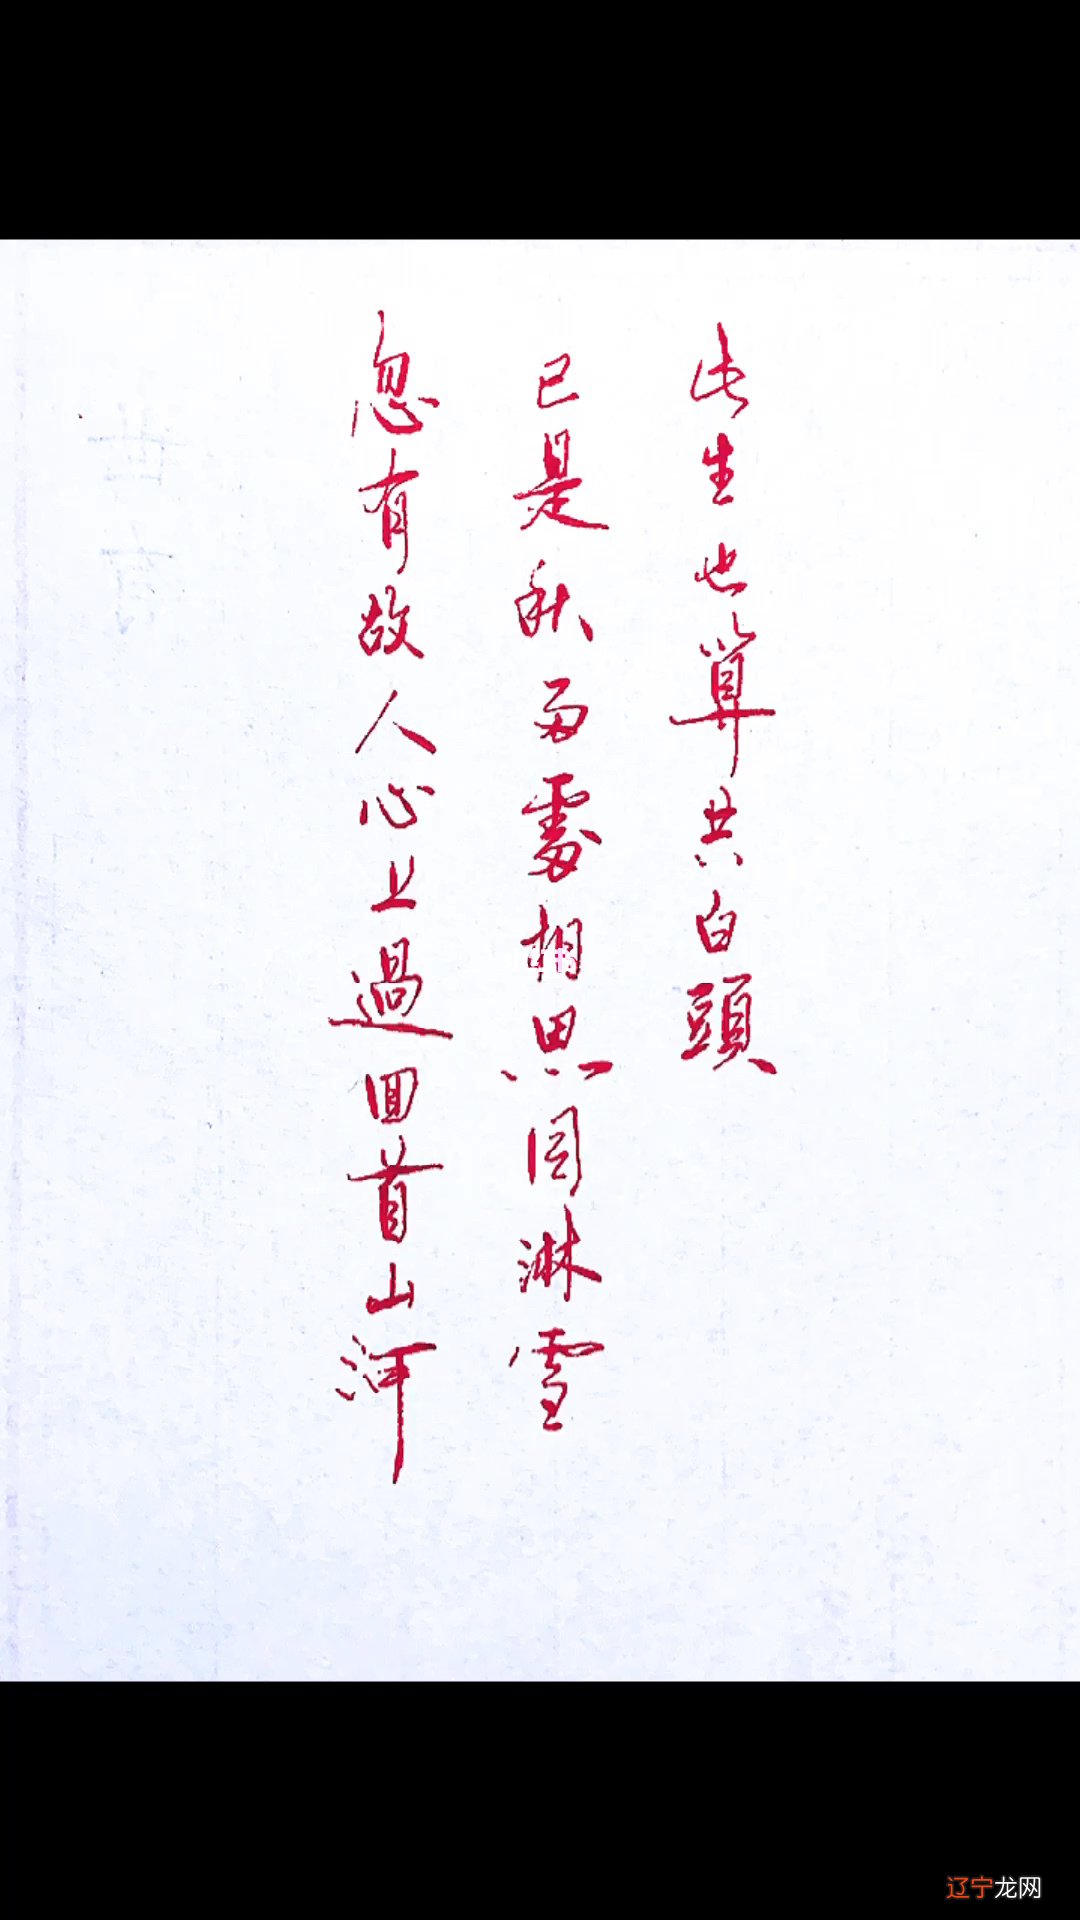 忽有故人心上過回首山河
已是秋两處相思同淋雪
此生也算共白頭
辽宁龙网